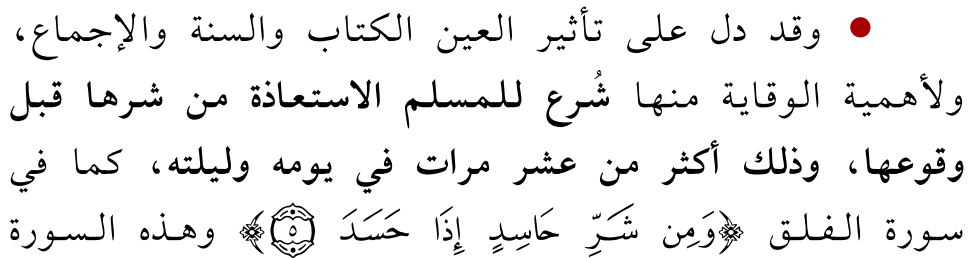 ● وقد دل على تأثير العين الكتاب والسنة والإجماع،
ولأهمية الوقاية منها شُرع للمسلم الاستعاذة من شرها قبل
وقوعها، وذلك أكثر من عشر مرات في يومه وليلته، كما في
سورة الفلق ﴿وَمِن شَرِّ حَاسِدٍ إِذَا حَسَدَ ۝٥﴾ وهذه السورة